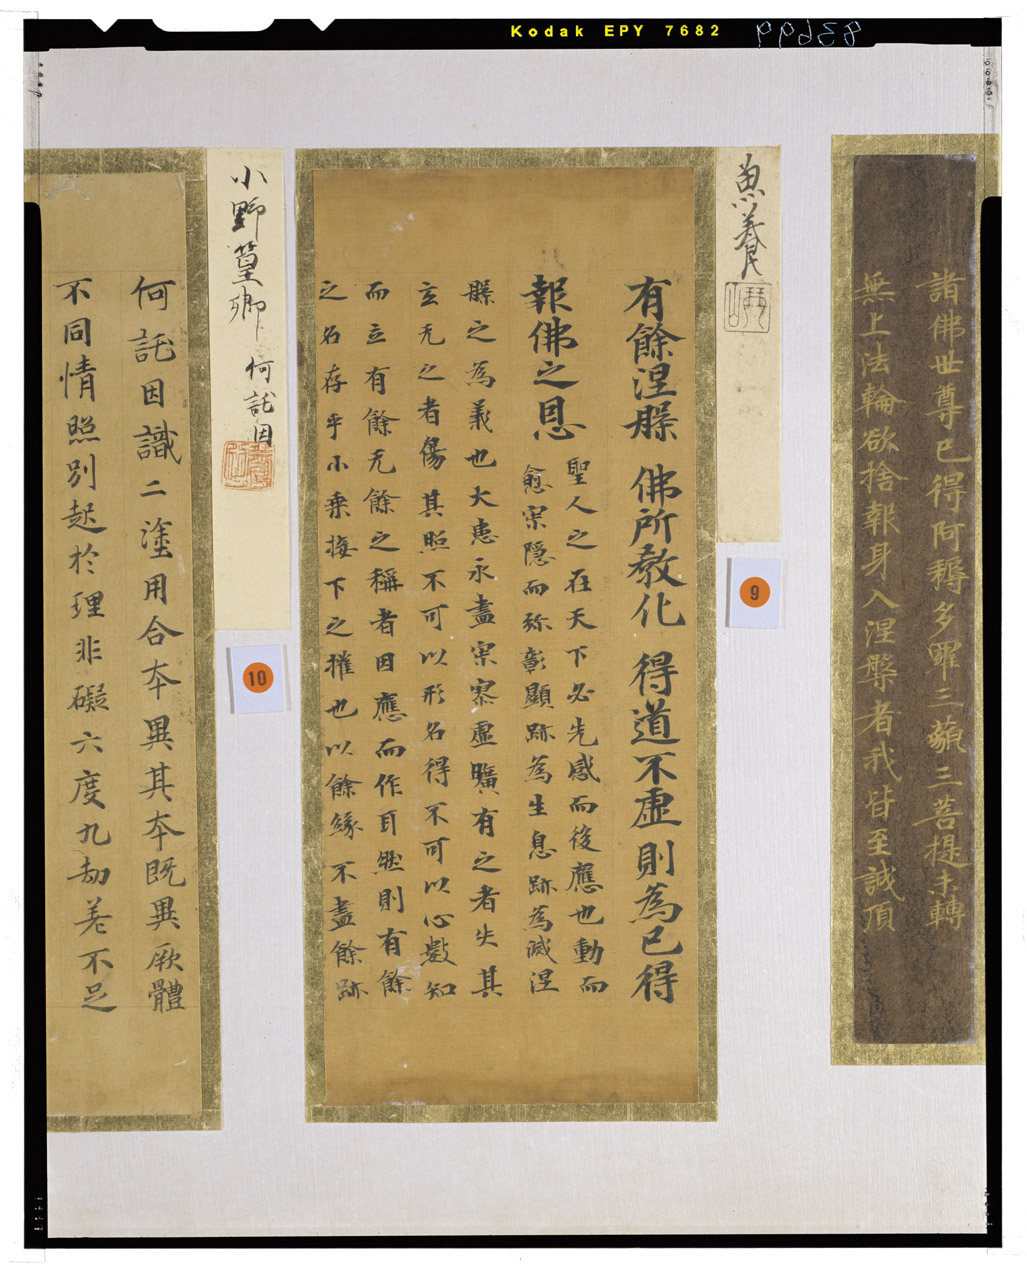 Kodak EPY 7682
83699
諸佛世尊已得阿耨多羅三藐三菩提未轉
無上法輪欲捨報身入涅槃者我皆至誠頂
魚養
9
有餘涅槃 佛所教化 得道不虛則為已得
報佛之恩
聖人之在天下必先感而後應也動而
愈寂隱而弥彰顯跡為生息跡為滅涅
槃之為義也大患永盡寂寥虛曠有之者失其
玄无之者傷其照不可以形名得不可以心數知
而立有餘无餘之稱者因應而作耳然則有餘
之名存乎小乘接下之權也以餘緣不盡餘跡
小野篁卿 何託因
10
何託因識二塗用合本異其本既異厥體
不同情照別起於理非礙六度九劫差不足